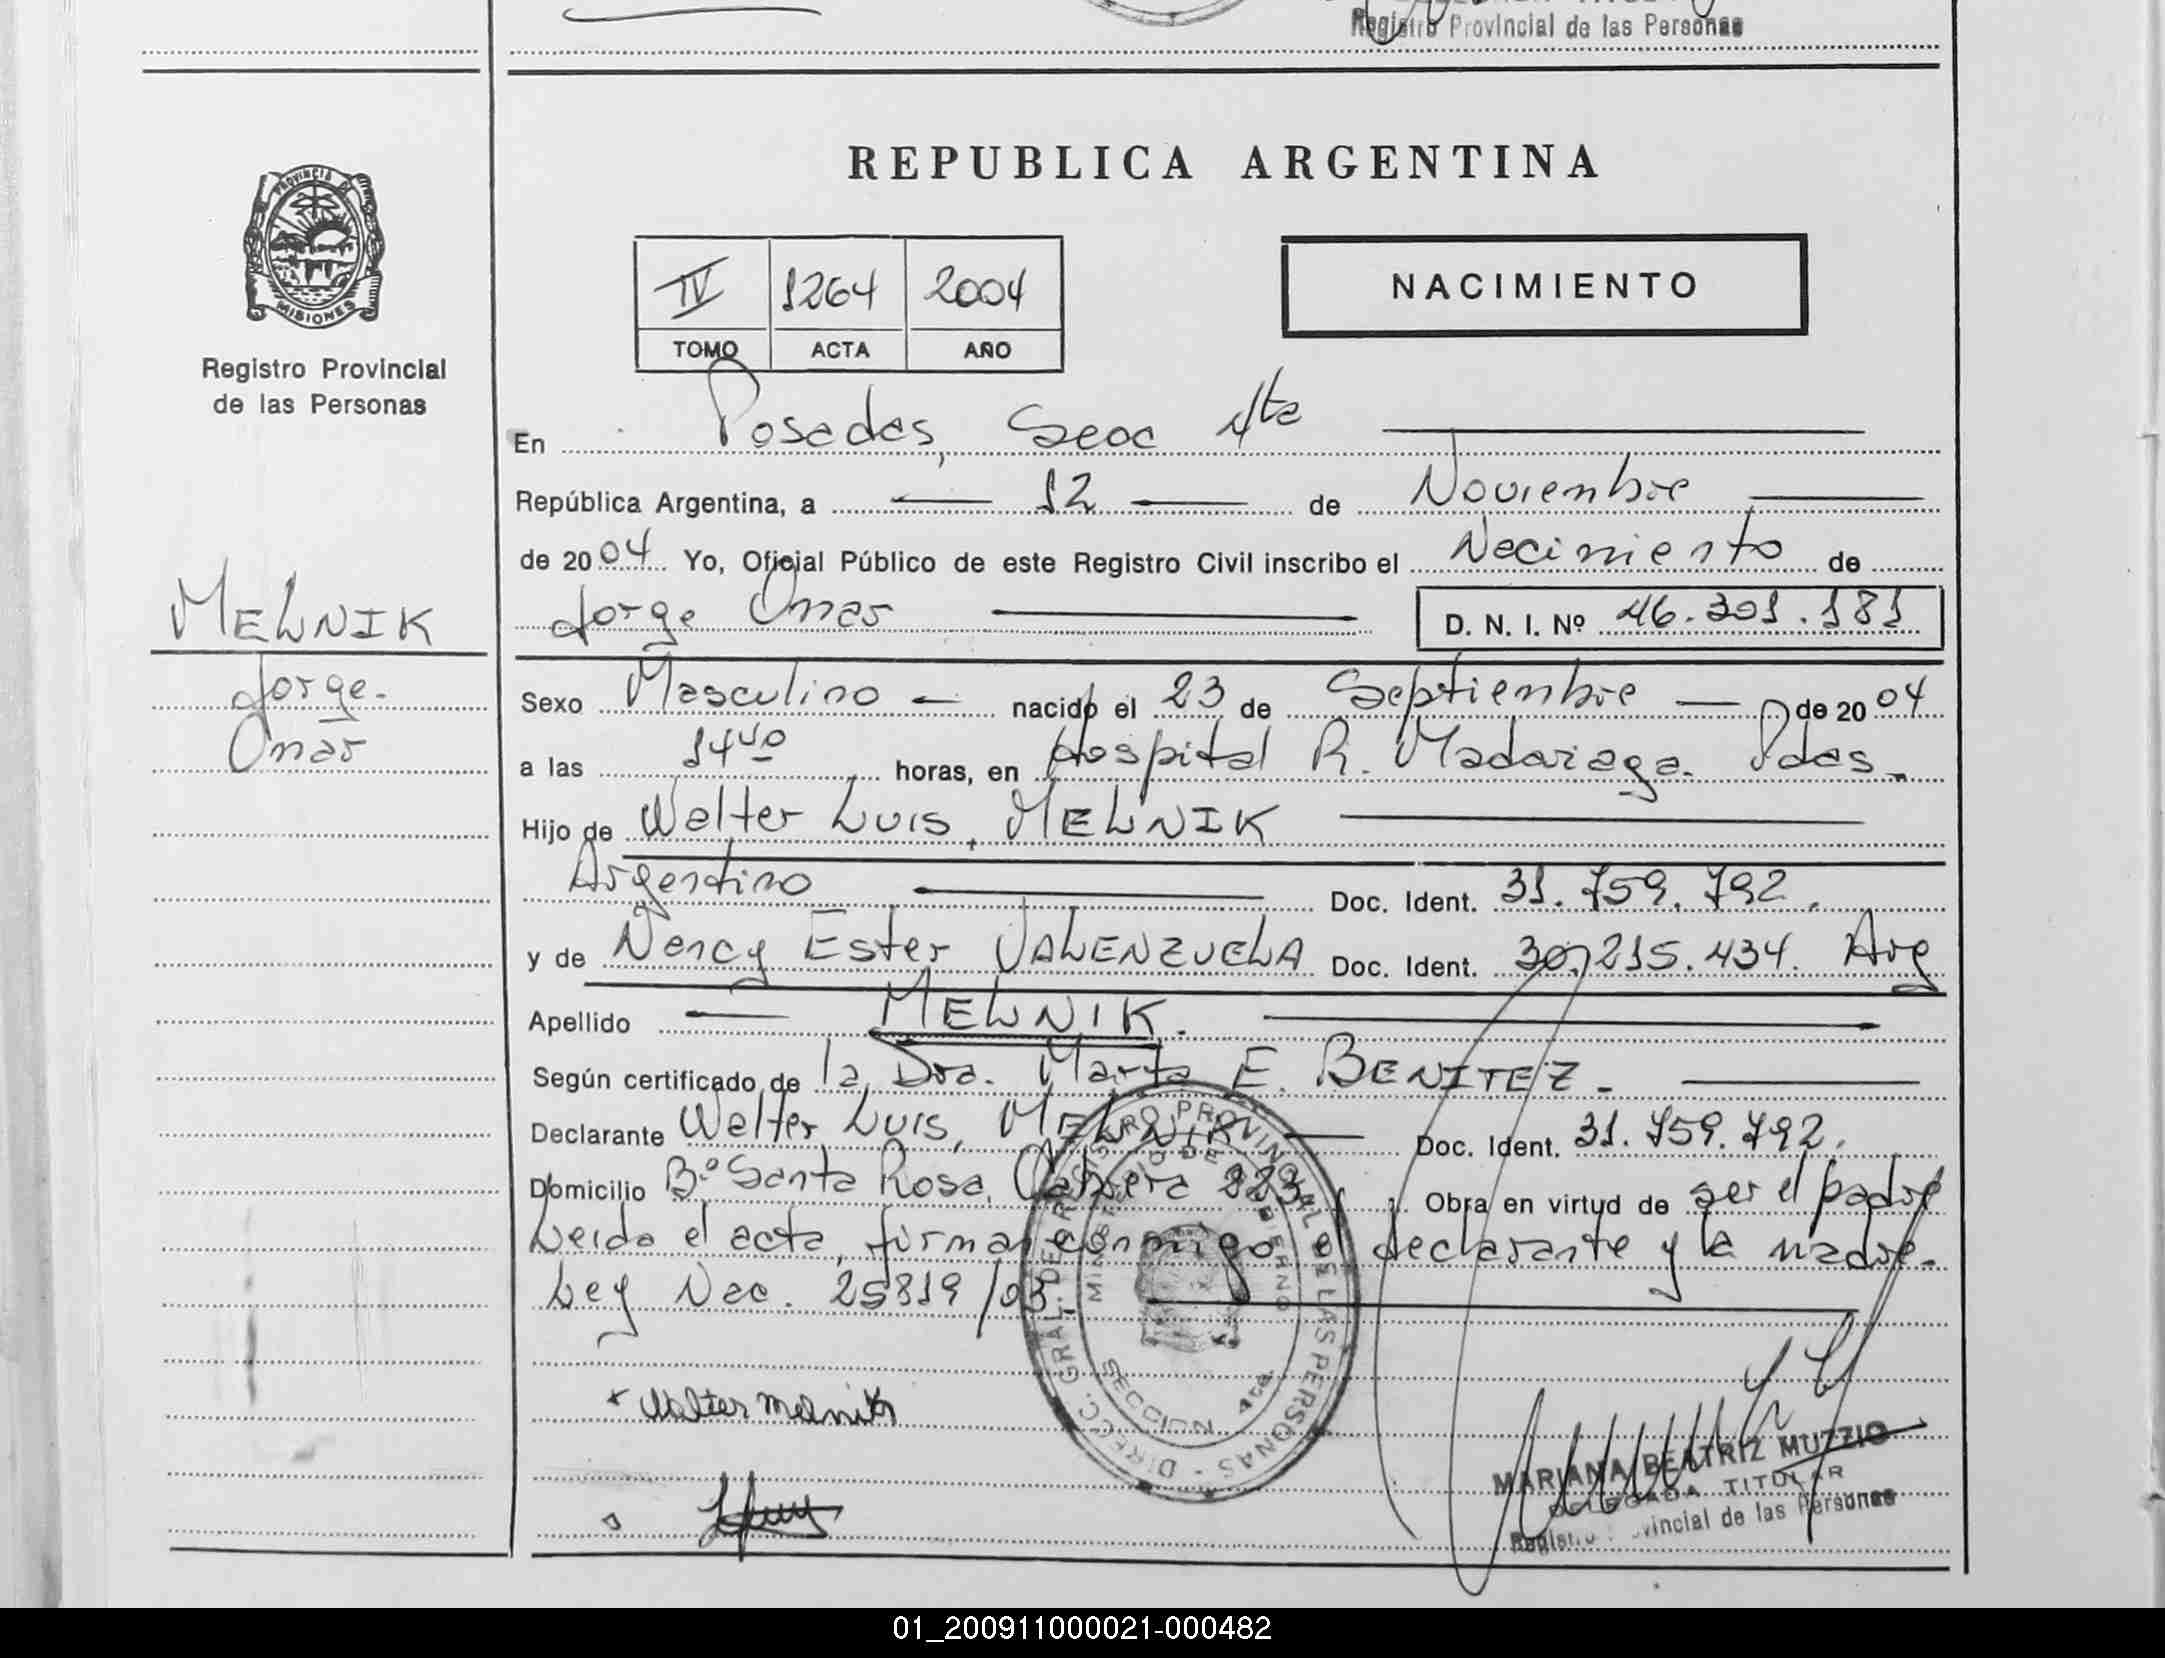 Registro Provincial de las Personas
PROVINCIA DE
MISIONES
Registro Provincial
de las Personas
REPUBLICA ARGENTINA
IV 1264 2004
TOMO ACTA AÑO
NACIMIENTO
En Posadas, Secc 4ta
República Argentina, a 12 de Noviembre
de 2004 Yo, Oficial Público de este Registro Civil inscribo el Nacimiento de
Jorge Omar D. N. I. Nº 46.301.181
MELNIK
Jorge.
Omar
Sexo Masculino nacido el 23 de Septiembre de 2004
a las 14 40 horas, en Hospital R. Madariaga. Pdas.
Hijo de Walter Luis, MELNIK
Argentino Doc. Ident. 31.759.792.
y de Nancy Ester VALENZUELA Doc. Ident. 30.215.434. Arg
Apellido MELNIK.
Según certificado de la Dra. Marta E. BENITEZ.
Declarante Walter Luis, MELNIK Doc. Ident. 31.759.792.
Domicilio Bº Santa Rosa, Cabrera 223 Obra en virtud de ser el padre
Leida el acta, firman conmigo el declarante y la madre.
Ley Nac. 25819/03.
DIRECC. GRAL. DE REGISTRO PROVINCIAL DE LAS PERSONAS
MINISTERIO DE GOBIERNO
SECCION 4ta
Walter Melnik
MARIANA BEATRIZ MUZZIO
DELEGADA TITULAR
Registro Provincial de las Personas
01_200911000021-000482